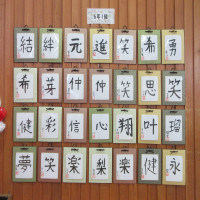 結 絆 元 進 笑 希 勇
希 芽 仲 仲 笑 思 笑
健 彩 信 心 翔 叶 瑠
夢 笑 楽 梨 楽 健 永